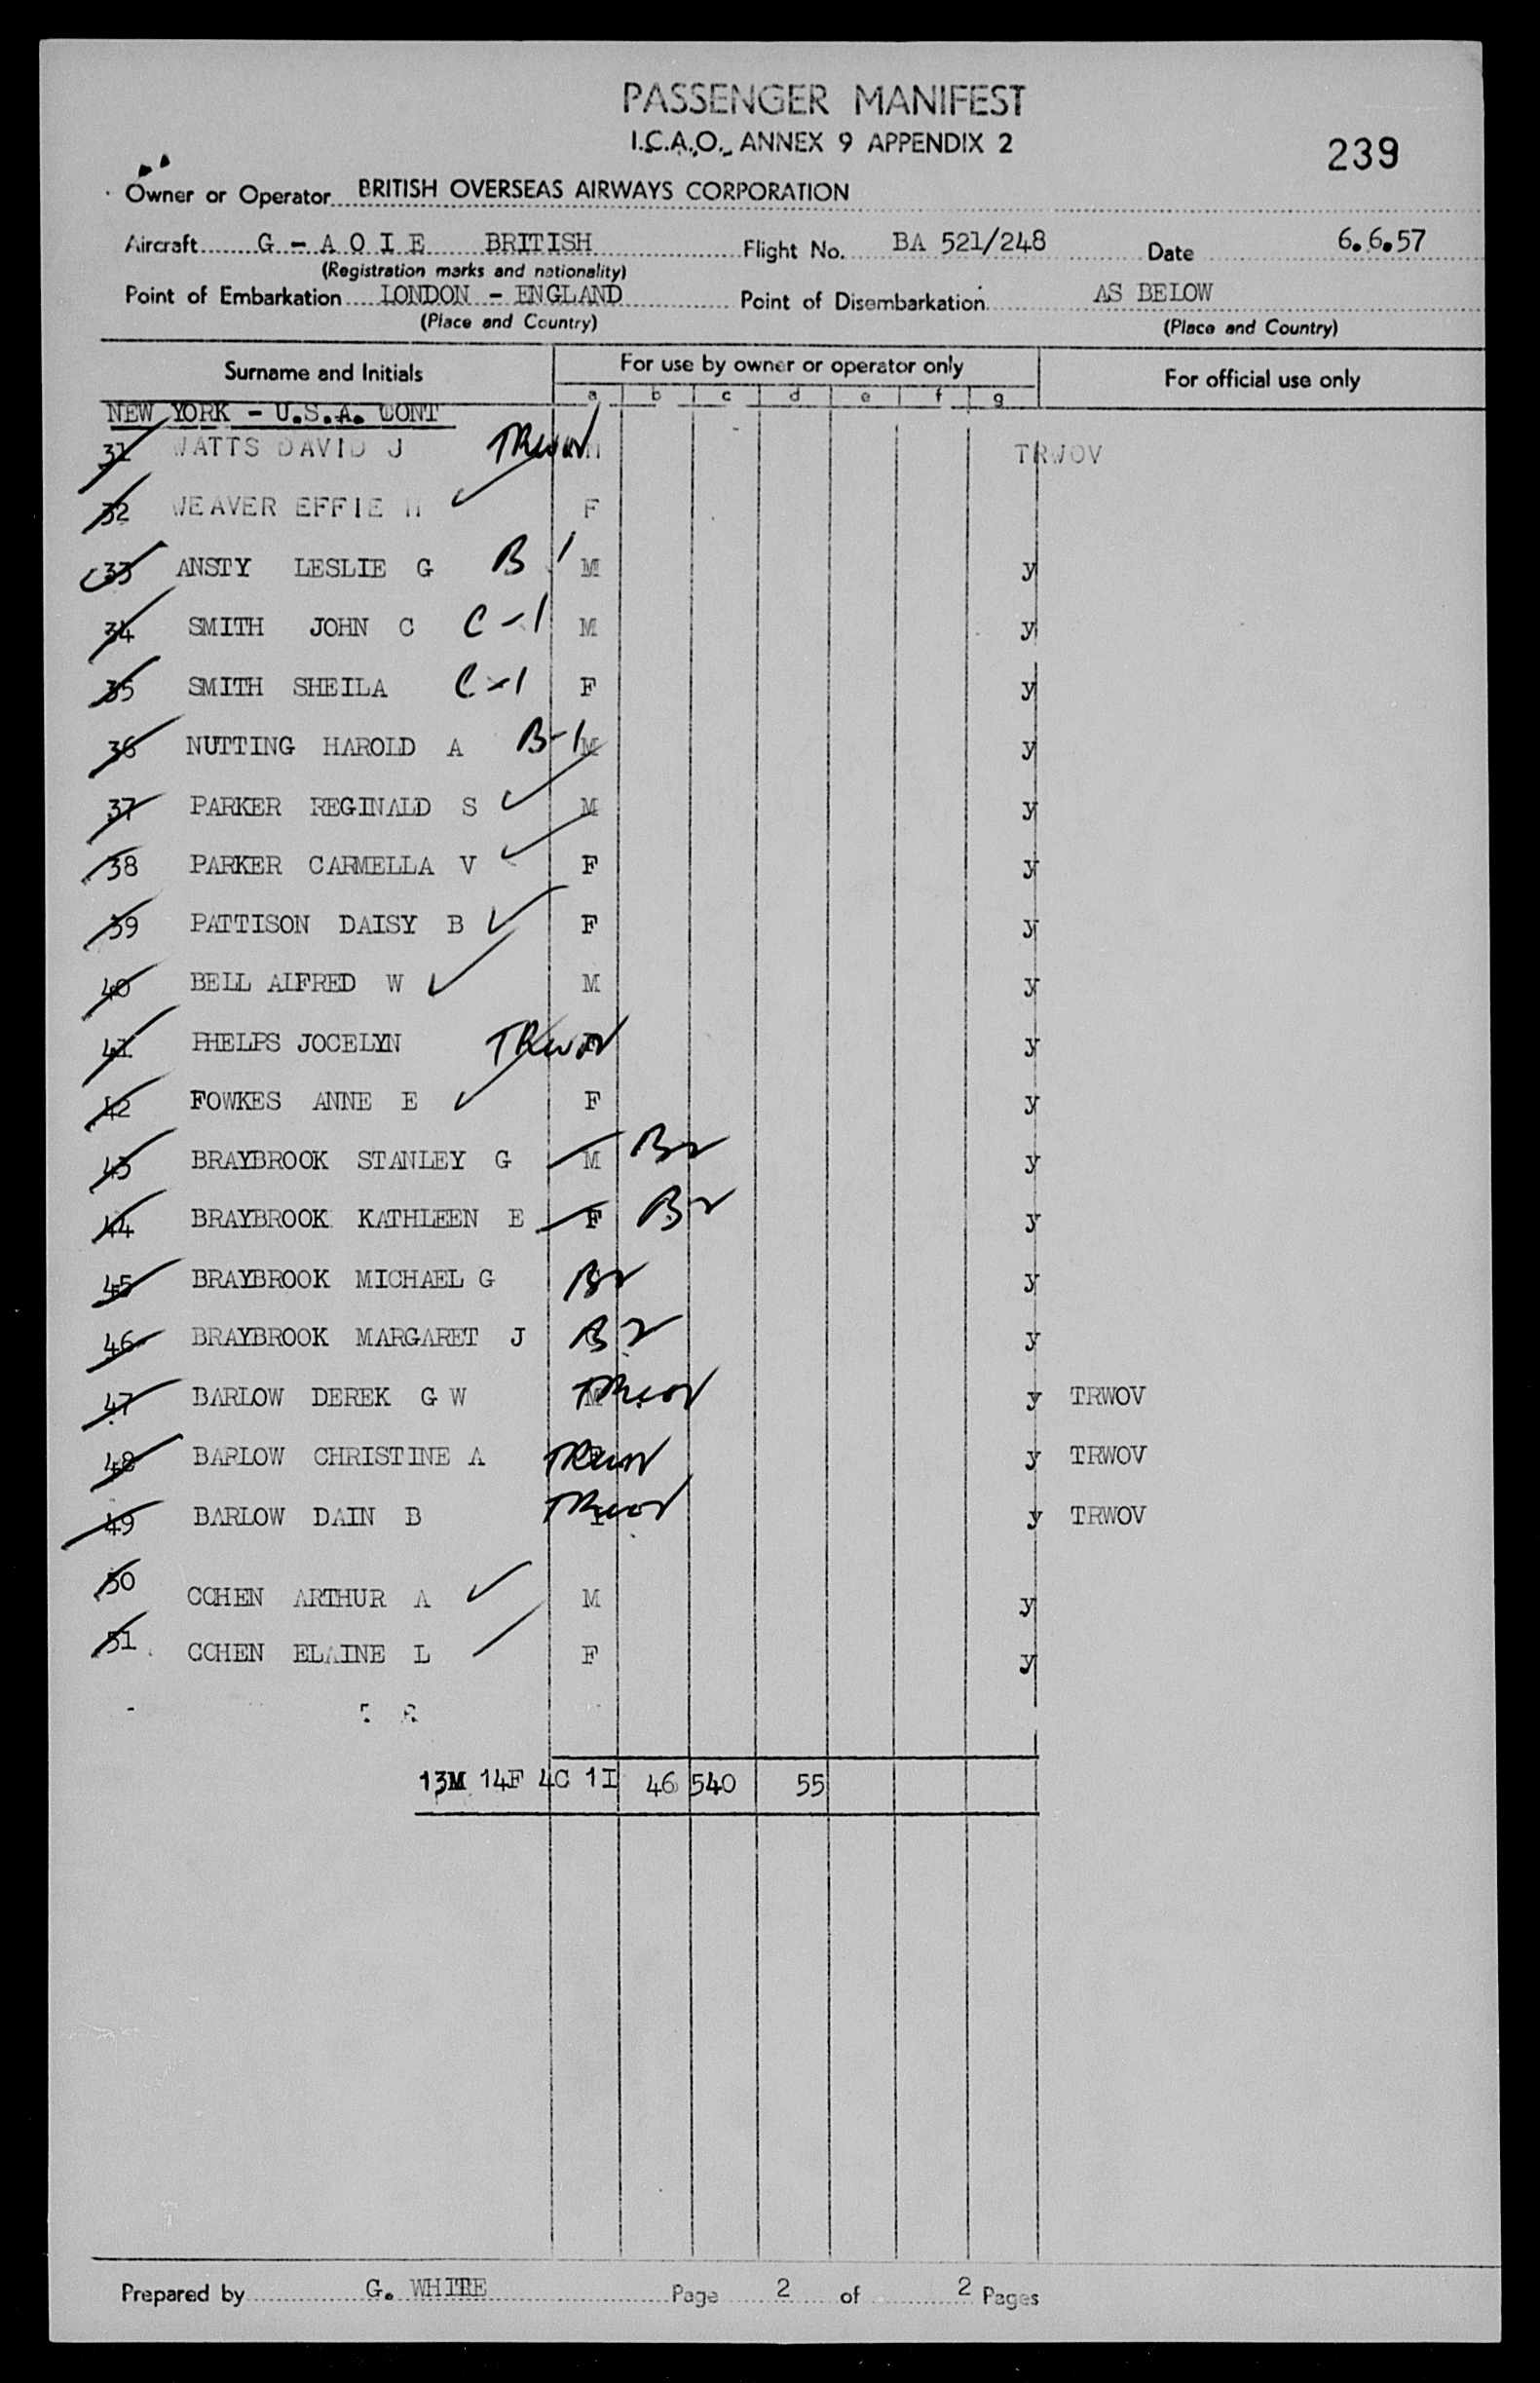 PASSENGER MANIFEST
I.C.A.O. ANNEX 9 APPENDIX 2
239
Owner or Operator BRITISH OVERSEAS AIRWAYS CORPORATION
Aircraft G - A O I E BRITISH Flight No. BA 521/248 Date 6.6.57
(Registration marks and nationality)
Point of Embarkation LONDON - ENGLAND Point of Disembarkation AS BELOW
(Place and Country) (Place and Country)
Surname and Initials For use by owner or operator only For official use only
a b c d e f g
NEW YORK - U.S.A. CONT
31 WATTS DAVID J TRWOV TRWOV
32 WEAVER EFFIE H F
33 ANSTY LESLIE G B 1 M y
34 SMITH JOHN C C-1 M y
35 SMITH SHEILA C-1 F y
36 NUTTING HAROLD A B-1 M y
37 PARKER REGINALD S M y
38 PARKER CARMELLA V F y
39 PATTISON DAISY B F y
40 BELL ALFRED W M y
41 PHELPS JOCELYN TRWOV y
42 FOWKES ANNE E F y
43 BRAYBROOK STANLEY G M B2 y
44 BRAYBROOK KATHLEEN E F B2 y
45 BRAYBROOK MICHAEL G B2 y
46 BRAYBROOK MARGARET J B2 y
47 BARLOW DEREK G W M TRWOV y TRWOV
48 BARLOW CHRISTINE A TRWOV y TRWOV
49 BARLOW DAIN B TRWOV y TRWOV
50 COHEN ARTHUR A M y
51 COHEN ELAINE L F y
13M 14F 4C 1I 46 540 55
Prepared by G. WHITE Page 2 of 2 Pages